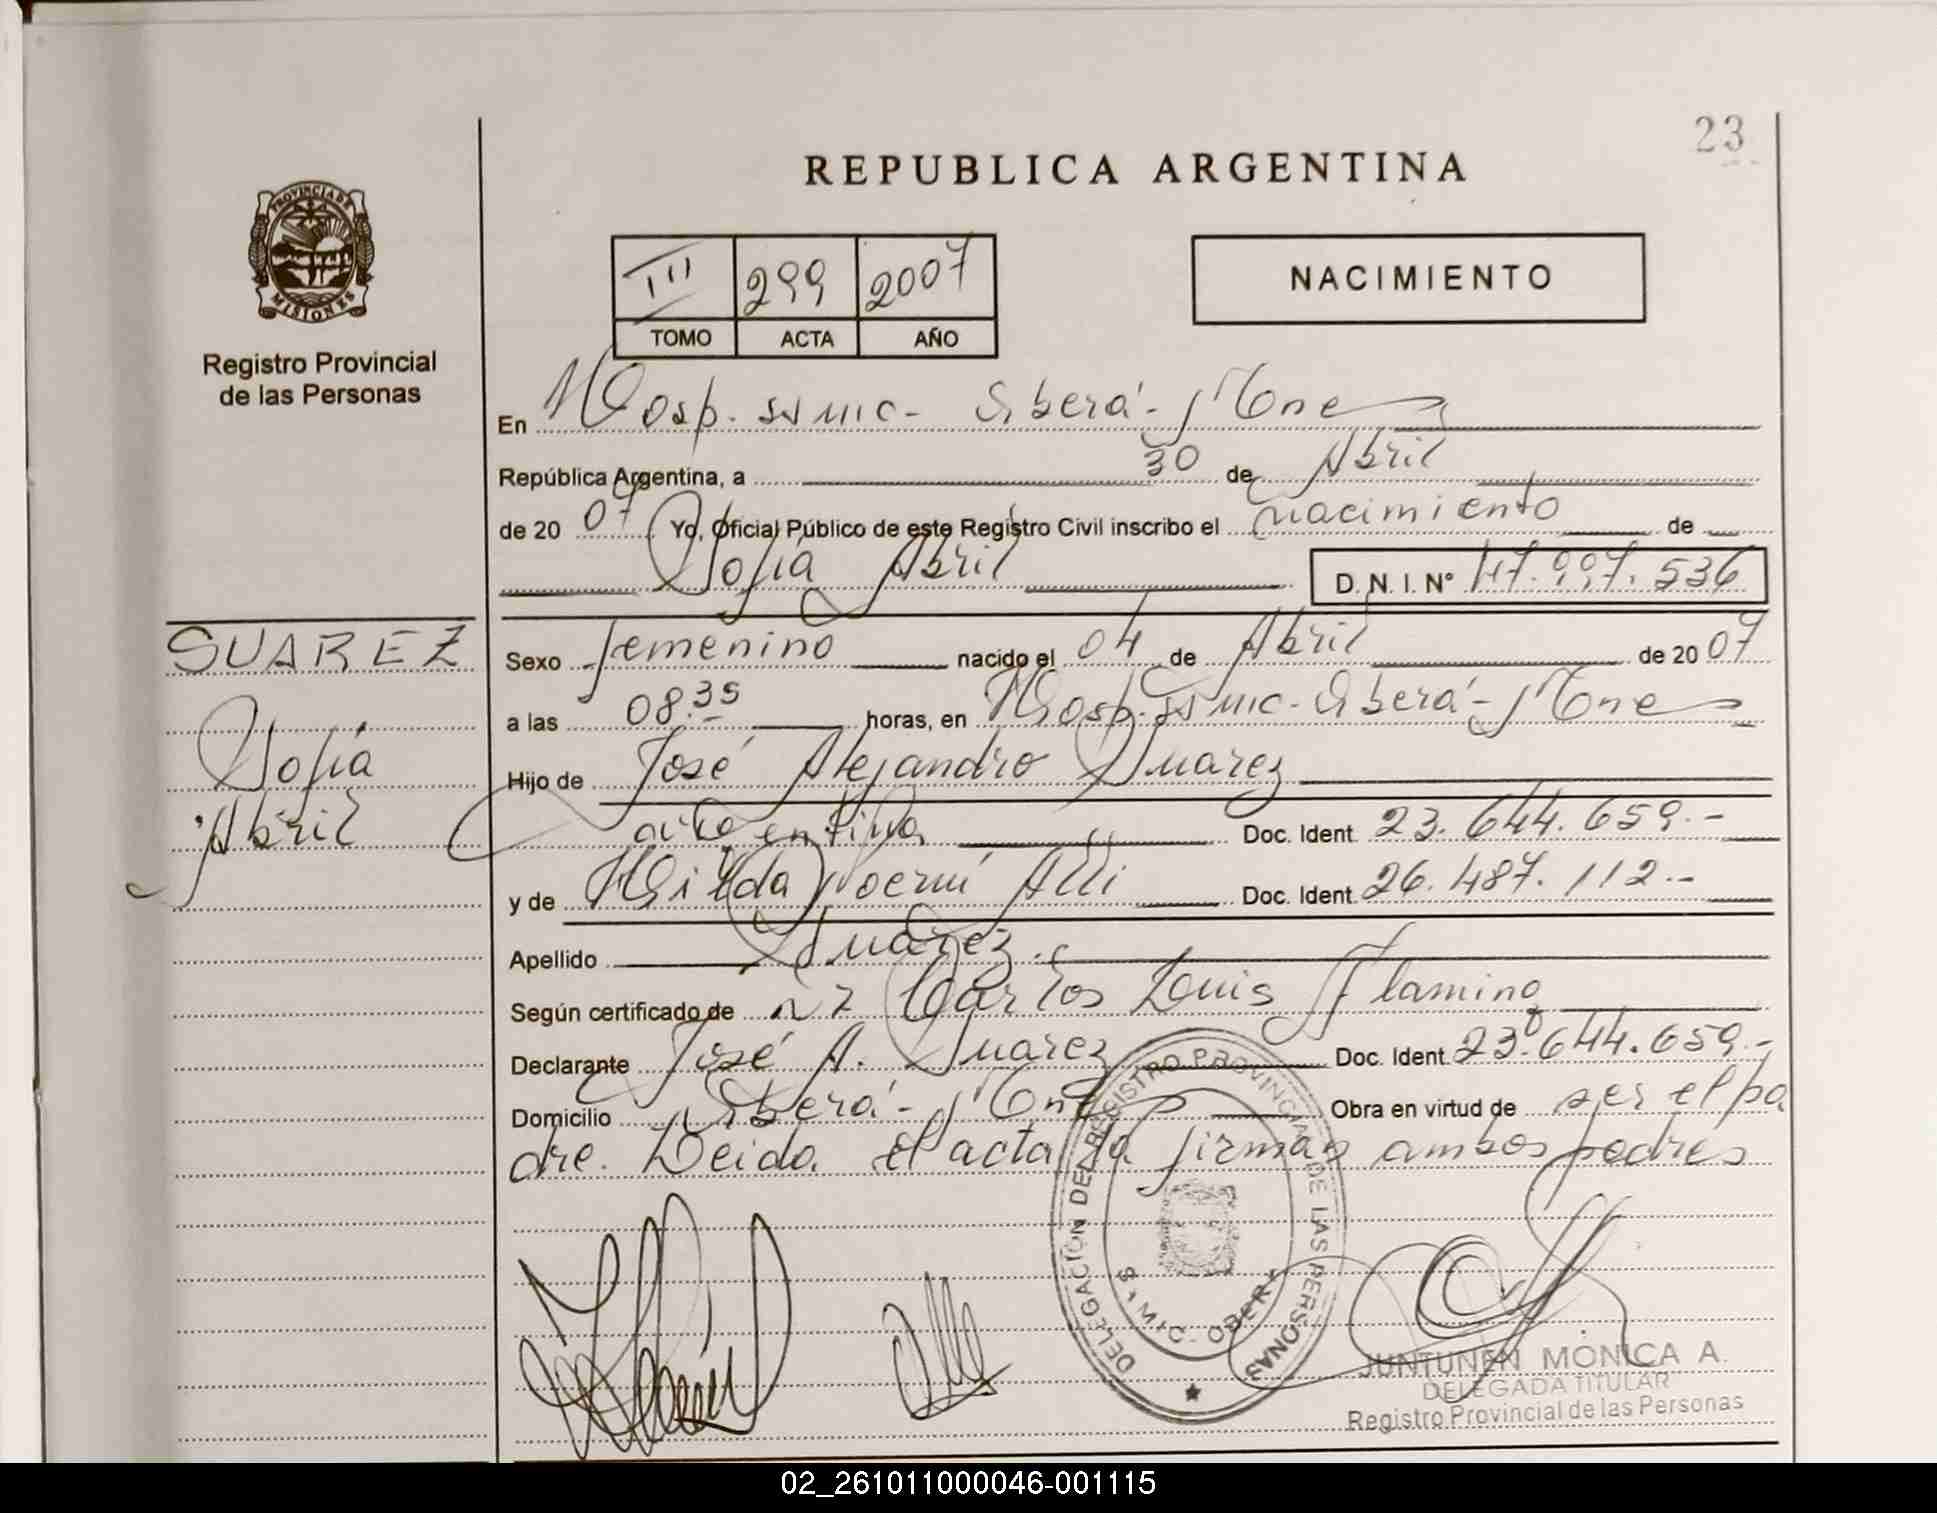 23
REPUBLICA ARGENTINA
PROVINCIA DE
MISIONES
Registro Provincial
de las Personas
III 299 2007
TOMO ACTA AÑO
NACIMIENTO
En Hosp. SAMIC- Oberá- Mnes
República Argentina, a 30 de Abril
de 20 07 Yo, Oficial Público de este Registro Civil inscribo el nacimiento de
Sofía Abril D.N.I.Nº 47.997.536
SUAREZ
Sofía
Abril
Sexo femenino nacido el 04 de Abril de 20 07
a las 08.35 horas, en Hosp. SAMIC- Oberá- Mnes
Hijo de José Alejandro Suarez
argentina Doc. Ident. 23.644.659.-
y de Hilda Noemí Alli Doc. Ident. 26.487.112.-
Apellido Suárez.
Según certificado de Carlos Luis Flamino
Declarante José A. Suarez Doc. Ident. 23.644.659.-
Domicilio Oberá- Mnes Obra en virtud de ser el pa
dre. Leida el acta la firman ambos padres
DELEGACIÓN DEL REGISTRO PROVINCIAL DE LAS PERSONAS
SAMIC. OBERA
JUNTUNEN MÓNICA A.
DELEGADA TITULAR
Registro Provincial de las Personas
02_261011000046-001115